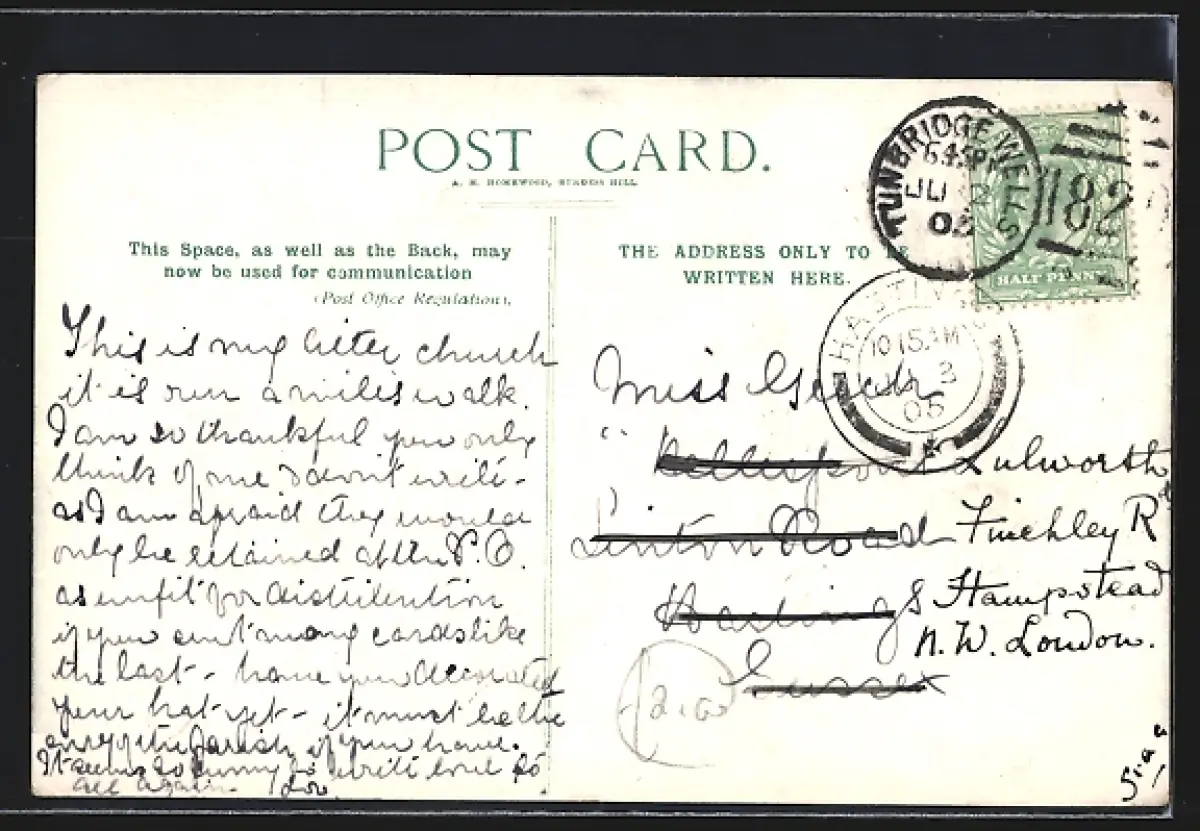 POST CARD.
A. H. HOMEWOOD, BURGESS HILL
This Space, as well as the Back, may
now be used for communication
(Post Office Regulation).
THE ADDRESS ONLY TO BE
WRITTEN HERE.
TUNBRIDGE WELLS
6 45 PM
JU 2
05
182
HALF PENNY
HASTINGS
10 15 AM
3
05
This is my little church
it is our a miles walk.
I am so thankful you only
think of me & don't write -
as I am afraid they would
only be retained at the P.O.
as unfit for distribution
if you sent many cards like
the last - have you decorated
your hat yet - it must be the
envy of the Parish if you have.
It seems so funny to write to
all again.
Miss
Lulworth
Linton Road Finchley Rd
Hastings Hampstead
N.W. London.
Sussex